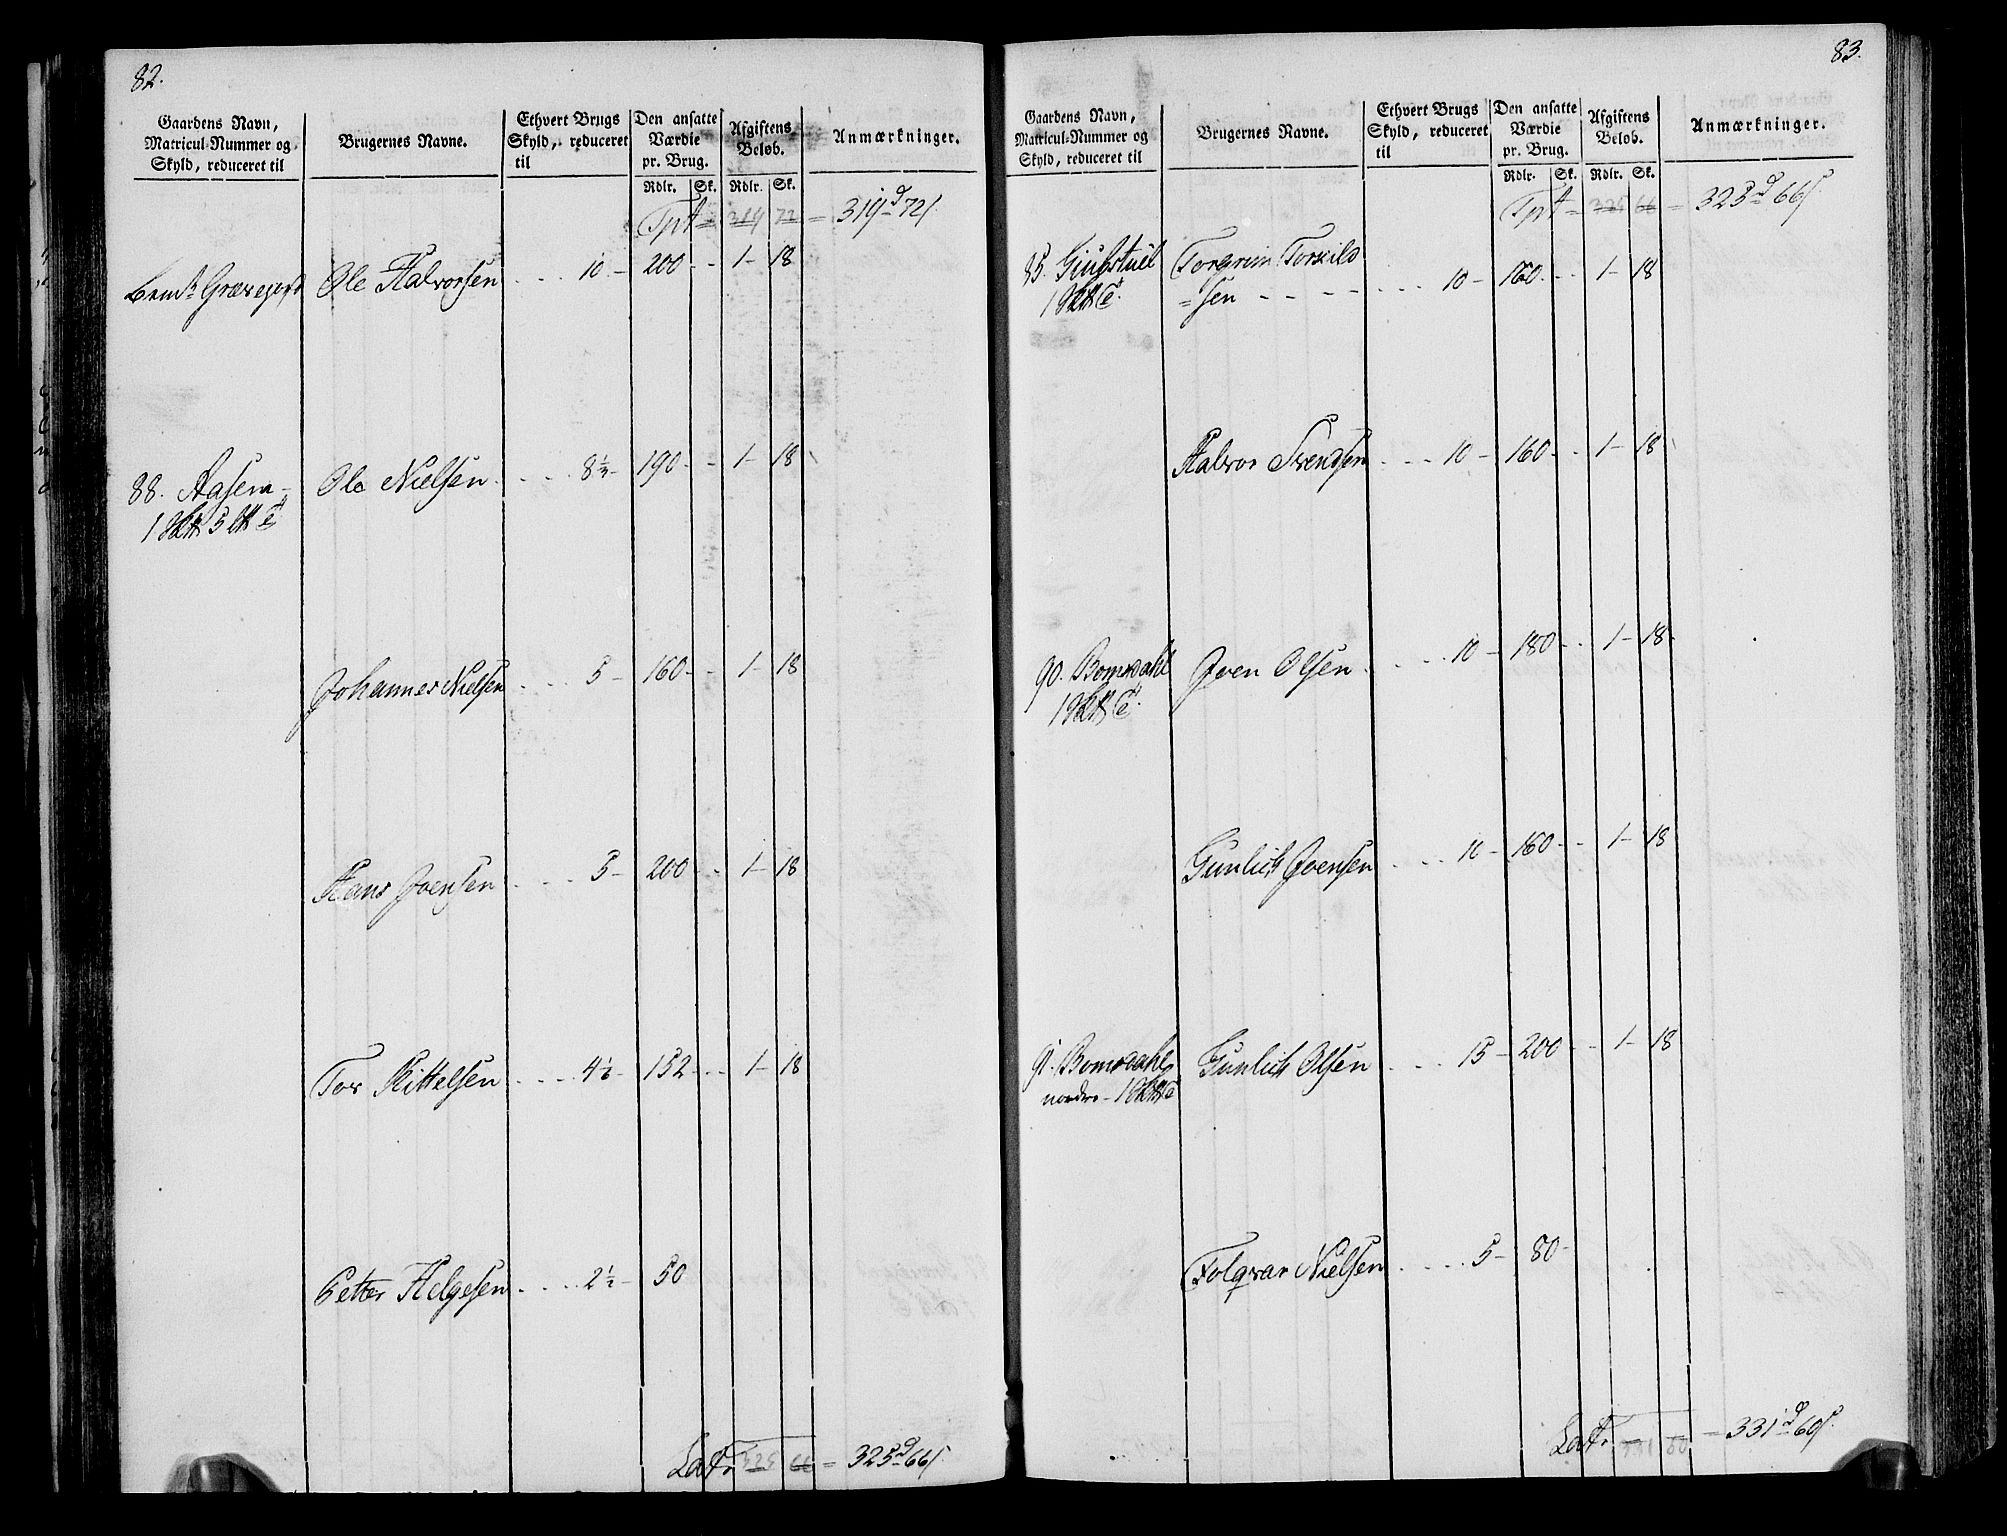 82.
Gaardens Navn, Matricul-Nummer og Skyld, reduceret til
Brugernes Navne.
Ethvert Brugs Skyld, reduceret til
Den ansatte Værdie pr. Brug.
Afgiftens Beløb.
Anmærkninger.
Rdlr. Sk. Rdlr. Sk.
Tpt = 319 72 = 319 72
Ole Halvorsen 10 - 200 - - 1 - 18
88. Aasem Ole Nielsen 8 1/2 - 190 - - 1 - 18
Johannes Nielsen 5 - 160 - - 1 - 18
Hans Joensen 5 - 200 - - 1 - 18
Tor Kittelsen 4 1/2 - 152 - - 1 - 18
Petter Helgesen 2 1/2 - 50
Lat. 325 66 = 325 66
83.
Gaardens Navn, Matricul-Nummer og Skyld, reduceret til
Brugernes Navne.
Ethvert Brugs Skyld, reduceret til
Den ansatte Værdie pr. Brug.
Afgiftens Beløb.
Anmærkninger.
Rdlr. Sk. Rdlr. Sk.
Tpt = 325 66 = 325 66
Torgrim Torkild
=sen 10 - 160 - - 1 - 18
Halvor Svendsen 10 - 160 - - 1 - 18
90. Bomdahl Joen Olsen 10 - 180 - - 1 - 18
Gunlich Joensen 10 - 160 - - 1 - 18
91. Bomdahl Gunlich Olsen 15 - 200 - - 1 - 18
nordre
Folqvar Nielsen 5 - 80 -
Lat. 331 60 = 331 60